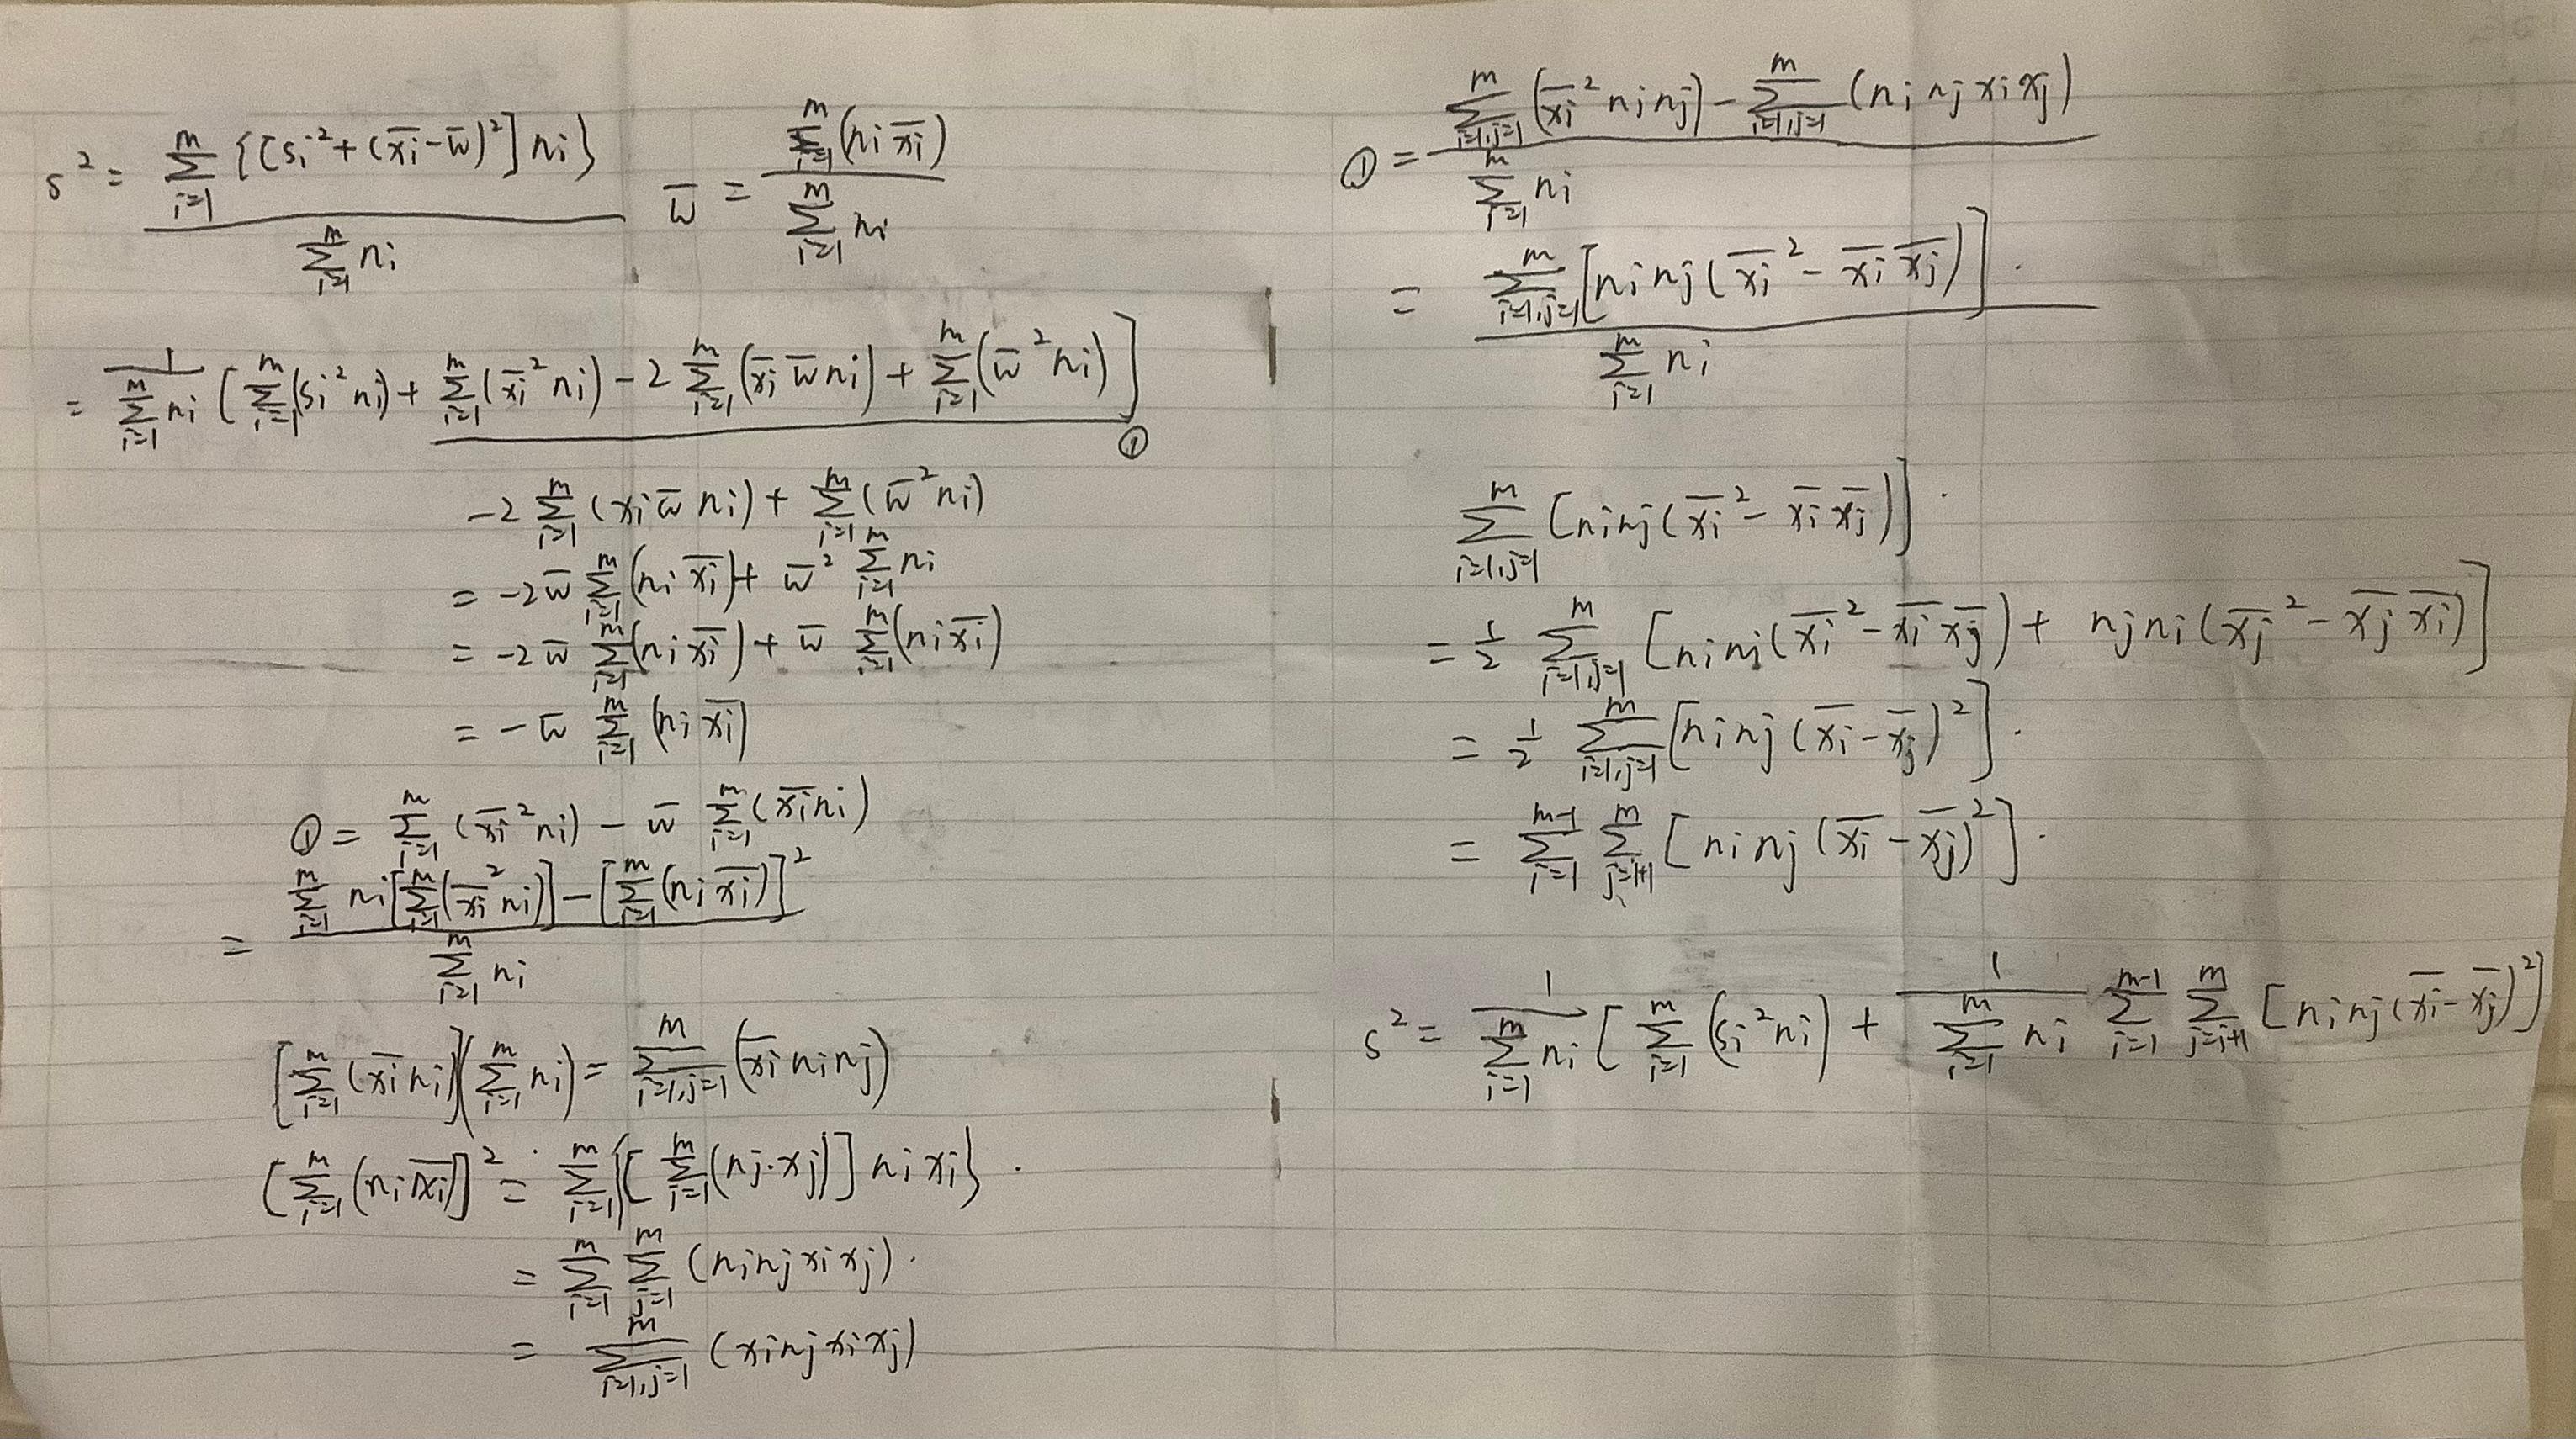 s² = \frac{\sum_{i=1}^{m} \{[s_i² + (\overline{x_i} - \overline{w})²] n_i\}}{\sum_{i=1}^{m} n_i}   \overline{w} = \frac{\sum_{i=1}^{m} (n_i \overline{x_i})}{\sum_{i=1}^{m} n_i}
= \frac{1}{\sum_{i=1}^{m} n_i} [\sum_{i=1}^{m} (s_i² n_i) + \sum_{i=1}^{m} (\overline{x_i}² n_i) - 2 \sum_{i=1}^{m} (\overline{x_i} \overline{w} n_i) + \sum_{i=1}^{m} (\overline{w}² n_i)]
①
-2 \sum_{i=1}^{m} (x_i \overline{w} n_i) + \sum_{i=1}^{m} (\overline{w}² n_i)
= -2 \overline{w} \sum_{i=1}^{m} (n_i \overline{x_i}) + \overline{w}² \sum_{i=1}^{m} n_i
= -2 \overline{w} \sum_{i=1}^{m} (n_i \overline{x_i}) + \overline{w} \sum_{i=1}^{m} (n_i \overline{x_i})
= - \overline{w} \sum_{i=1}^{m} (n_i \overline{x_i})
① = \sum_{i=1}^{m} (\overline{x_i}² n_i) - \overline{w} \sum_{i=1}^{m} (\overline{x_i} n_i)
= \frac{\sum_{i=1}^{m} n_i [\sum_{i=1}^{m} (\overline{x_i}² n_i)] - [\sum_{i=1}^{m} (n_i \overline{x_i})]²}{\sum_{i=1}^{m} n_i}
[\sum_{i=1}^{m} (\overline{x_i} n_i)] (\sum_{i=1}^{m} n_i) = \sum_{i=1,j=1}^{m} (\overline{x_i} n_i n_j)
[\sum_{i=1}^{m} (n_i \overline{x_i})]² = \sum_{i=1}^{m} \{[\sum_{j=1}^{m} (n_j · x_j)] n_i x_i\}.
= \sum_{i=1}^{m} \sum_{j=1}^{m} (n_i n_j x_i x_j).
= \sum_{i=1,j=1}^{m} (x_i n_j x_i x_j)
① = \frac{\sum_{i=1,j=1}^{m} (\overline{x_i}² n_i n_j) - \sum_{i=1,j=1}^{m} (n_i n_j x_i x_j)}{\sum_{i=1}^{m} n_i}
= \frac{\sum_{i=1,j=1}^{m} [n_i n_j (\overline{x_i}² - \overline{x_i} \overline{x_j})]}{\sum_{i=1}^{m} n_i}.
\sum_{i=1,j=1}^{m} [n_i n_j (\overline{x_i}² - \overline{x_i} \overline{x_j})].
= \frac{1}{2} \sum_{i=1,j=1}^{m} [n_i n_j (\overline{x_i}² - \overline{x_i} \overline{x_j}) + n_j n_i (\overline{x_j}² - \overline{x_j} \overline{x_i})]
= \frac{1}{2} \sum_{i=1,j=1}^{m} [n_i n_j (\overline{x_i} - \overline{x_j})²].
= \sum_{i=1}^{m-1} \sum_{j=i+1}^{m} [n_i n_j (\overline{x_i} - \overline{x_j})²].
s² = \frac{1}{\sum_{i=1}^{m} n_i} [\sum_{i=1}^{m} (s_i² n_i) + \frac{1}{\sum_{i=1}^{m} n_i} \sum_{i=1}^{m-1} \sum_{j=i+1}^{m} [n_i n_j (\overline{x_i} - \overline{x_j})²]